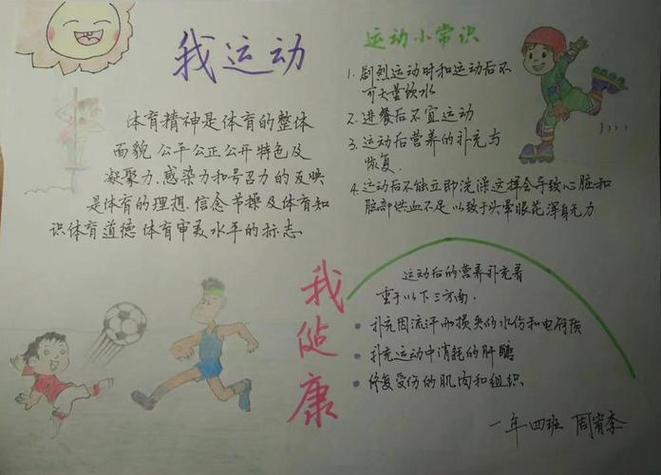 我运动
体育精神是体育的整体
面貌.公平公正公开特色及
凝聚力.感染力和号召力的反映
是体育的理想.信念节操及体育知
识体育道德 体育审美水平的标志.
运动小常识
1. 剧烈运动时和运动后不
可大量饮水
2. 进餐后不宜运动
3. 运动后营养的补充与
恢复.
4. 运动后不能立即洗澡这样会导致心脏和
脑部供血不足.以致于头晕眼花浑身无力
我健康
运动后的营养补充着
重于以下三方面.
补充因流汗而损失的水份和电解质
补充运动中消耗的肝醣
修复受伤的肌肉和组织.
一年四班 周宥